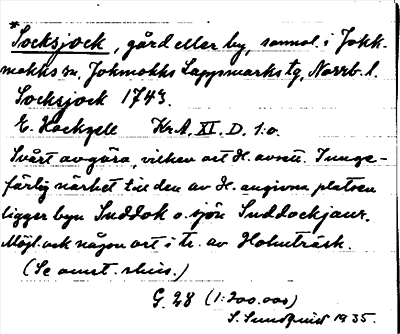 *Socksjock, gård eller by, sannol. i Jokk-
mokks sn, Jokmokks Lappmarks tg, Norrb. l.
Socksjock 1743.
E. Hackzell Kr. A. XI. D. 1:o.
Svårt avgöra, vilken ort H. avsett. I unge-
färlig närhet till den av H. angivna platsen
ligger byn Suddok o. sjön Suddockjaur.
Möjl. ock någon ort i tr. av Holmträsk.
(Se omst. skiss.)
G. 28 (1:200.000)
S. Sundquist 1935